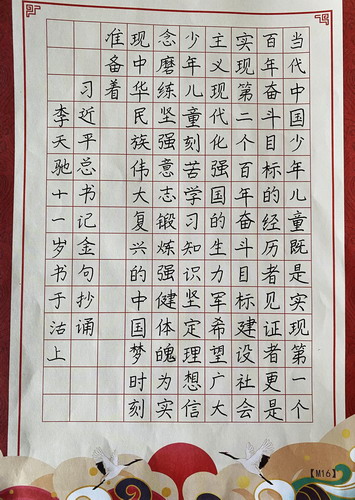 当代中国少年儿童既是实现第一个
百年奋斗目标的经历者见证者更是
实现第二个百年奋斗目标建设社会
主义现代化强国的生力军希望广大
少年儿童刻苦学习知识坚定理想信
念磨练坚强意志锻炼强健体魄为实
现中华民族伟大复兴的中国梦时刻
准备着
习近平总书记金句抄诵
李天驰十一岁书于沽上
【M16】